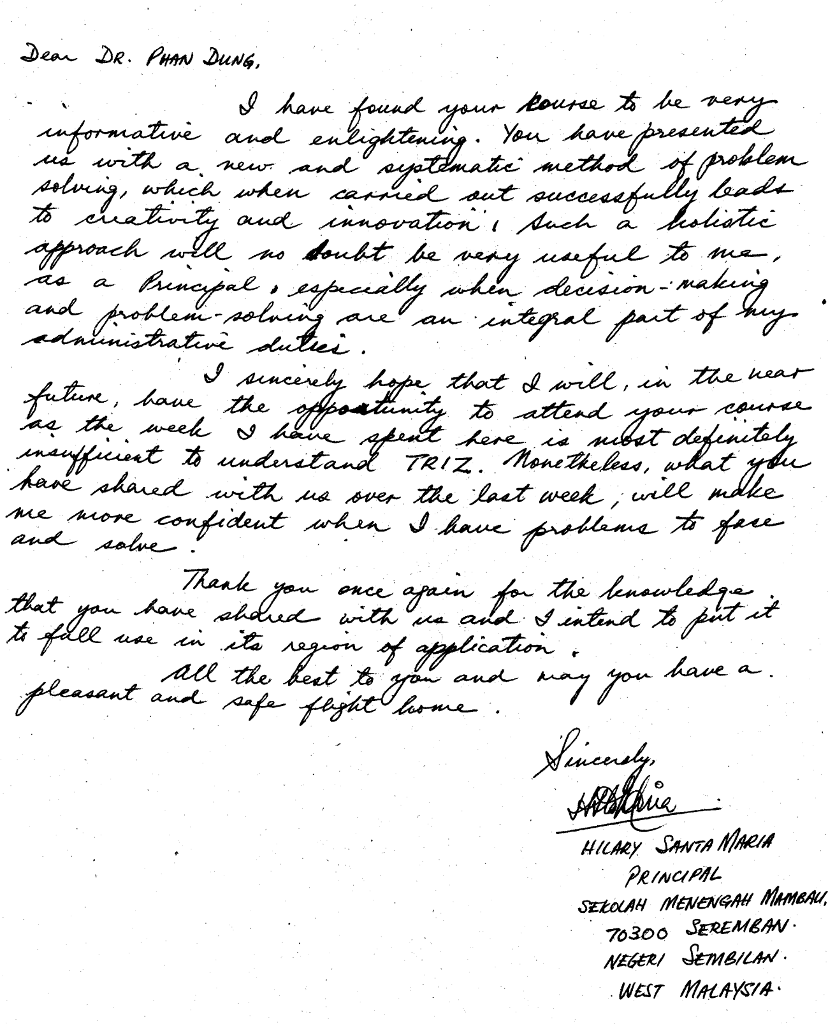 Dear DR. PHAN DUNG,
I have found your course to be very
informative and enlightening. You have presented
us with a new and systematic method of problem
solving, which when carried out successfully leads
to creativity and innovation. Such a holistic
approach will no doubt be very useful to me,
as a Principal, especially when decision-making
and problem-solving are an integral part of my
administrative duties.
I sincerely hope that I will, in the near
future, have the opportunity to attend your course
as the week I have spent here is most definitely
insufficient to understand TRIZ. Nonetheless, what you
have shared with us over the last week, will make
me more confident when I have problems to face
and solve.
Thank you once again for the knowledge
that you have shared with us and I intend to put it
to full use in its region of application.
All the best to you and may you have a
pleasant and safe flight home.
Sincerely,
HILARY SANTA MARIA
PRINCIPAL
SEKOLAH MENENGAH MAMBAU,
70300 SEREMBAN.
NEGERI SEMBILAN.
WEST MALAYSIA.